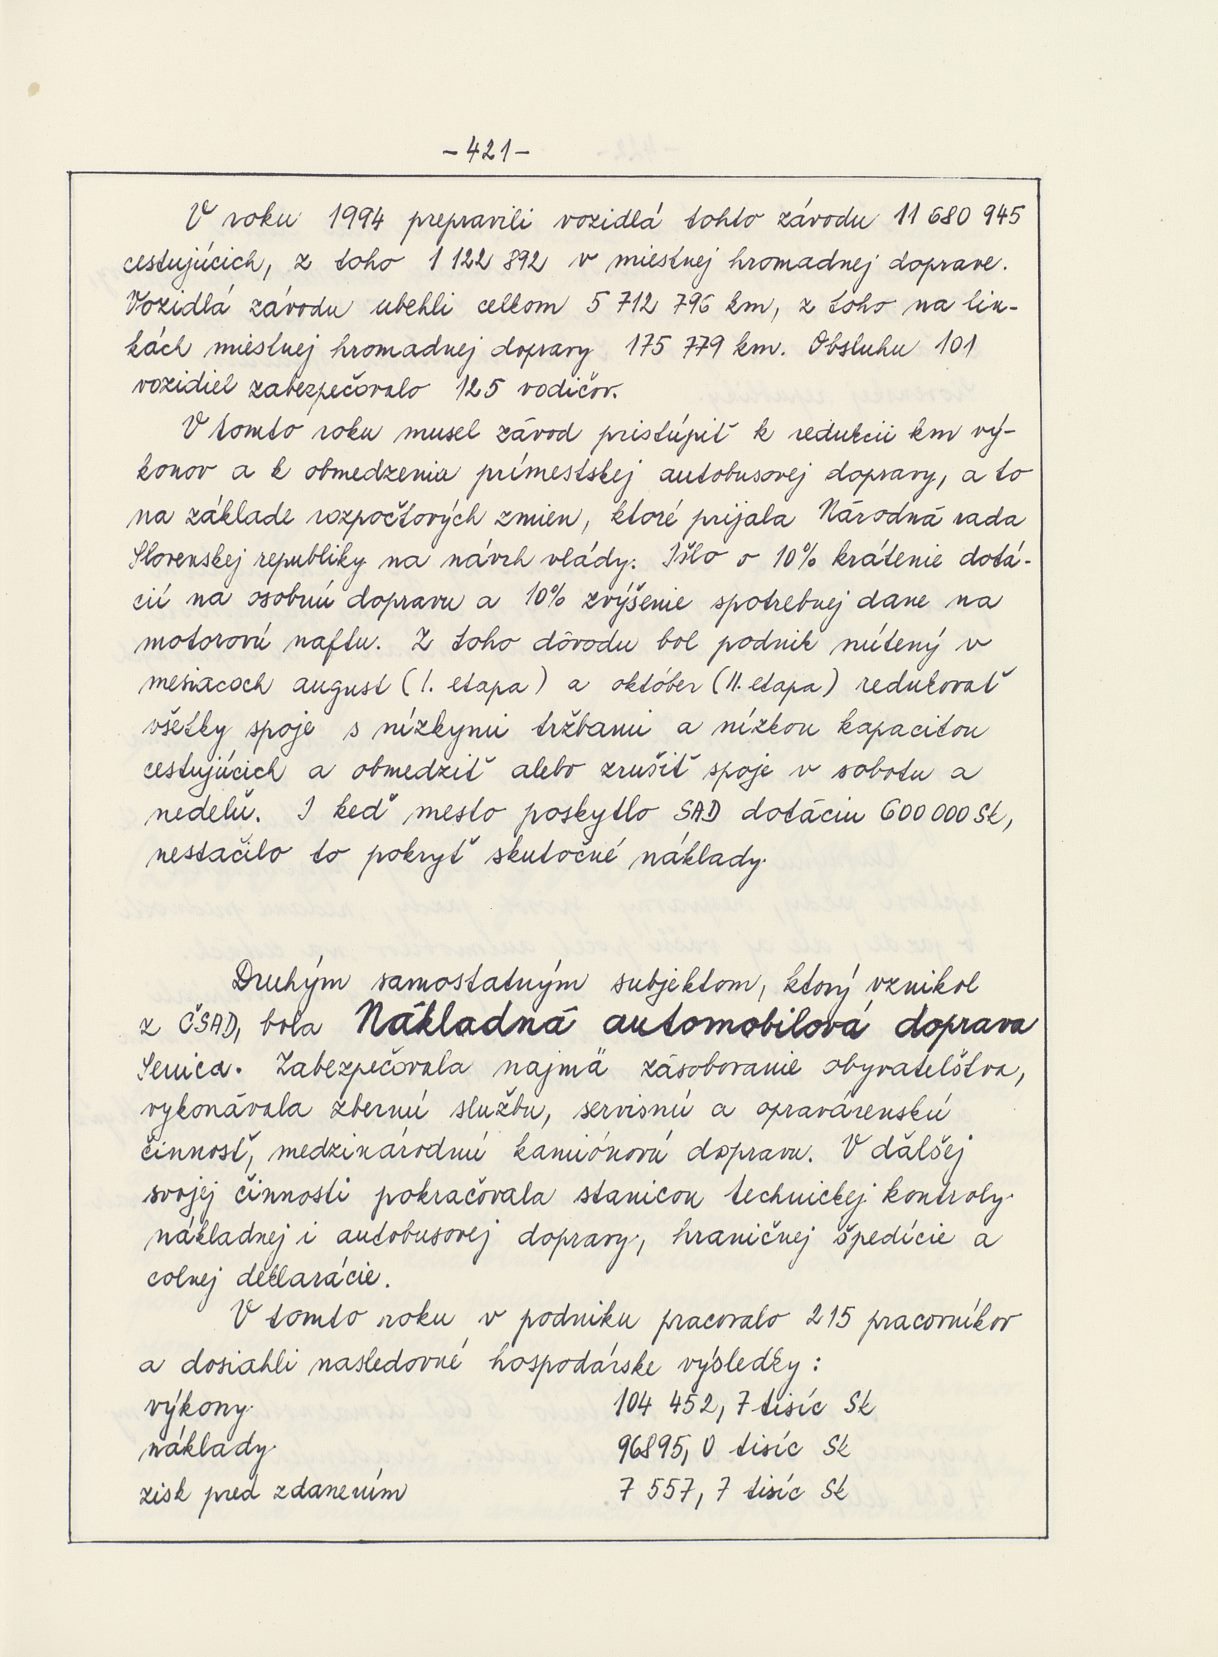 -421-
V roku 1994 prepravili vozidlá tohto závodu 11 680 945
cestujúcich, z toho 1 122 892 v miestnej hromadnej doprave.
Vozidlá závodu ubehli celkom 5 712 796 km, z toho na lin-
kách miestnej hromadnej dopravy 175 779 km. Obsluhu 101
vozidiel zabezpečovalo 125 vodičov.
V tomto roku musel závod pristúpiť k redukcii km vý-
konov a k obmedzeniu prímestskej autobusovej dopravy, a to
na základe rozpočtových zmien, ktoré prijala Národná rada
Slovenskej republiky na návrh vlády. Išlo o 10% krátenie dotá-
cií na osobnú dopravu a 10% zvýšenie spotrebnej dane na
motorovú naftu. Z toho dôvodu bol podnik nútený v
mesiacoch august (I. etapa) a október (II. etapa) redukovať
všetky spoje s nízkymi tržbami a nízkou kapacitou
cestujúcich a obmedziť alebo zrušiť spoje v sobotu a
nedeľu. I keď mesto poskytlo SAD dotáciu 600 000 Sk,
nestačilo to pokryť skutočné náklady.
Druhým samostatným subjektom, ktorý vznikol
z ČSAD, bola Nákladná automobilová doprava
Senica. Zabezpečovala najmä zásobovanie obyvateľstva,
vykonávala zbernú službu, servisnú a opravárenskú
činnosť, medzinárodnú kamiónovú dopravu. V ďalšej
svojej činnosti pokračovala stanicou technickej kontroly
nákladnej i autobusovej dopravy, hraničnej špedície a
colnej deklarácie.
V tomto roku v podniku pracovalo 215 pracovníkov
a dosiahli nasledovné hospodárske výsledky:
výkony 104 452, 7 tisíc Sk
náklady 96895, 0 tisíc Sk
zisk pred zdanením 7 557, 7 tisíc Sk